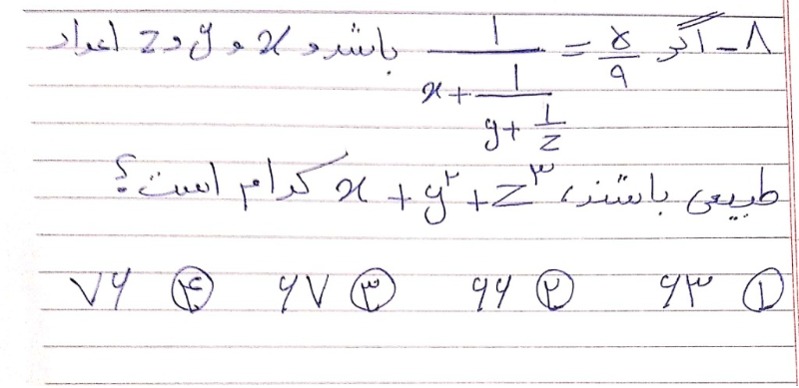 ۸- اگر ۵/۹ = ۱/(x + ۱/(y + ۱/z)) باشد و x و y و z اعداد
طبیعی باشند، x + y² + z³ کدام است؟
① ۶۳ ② ۶۶ ③ ۶۷ ④ ۷۶